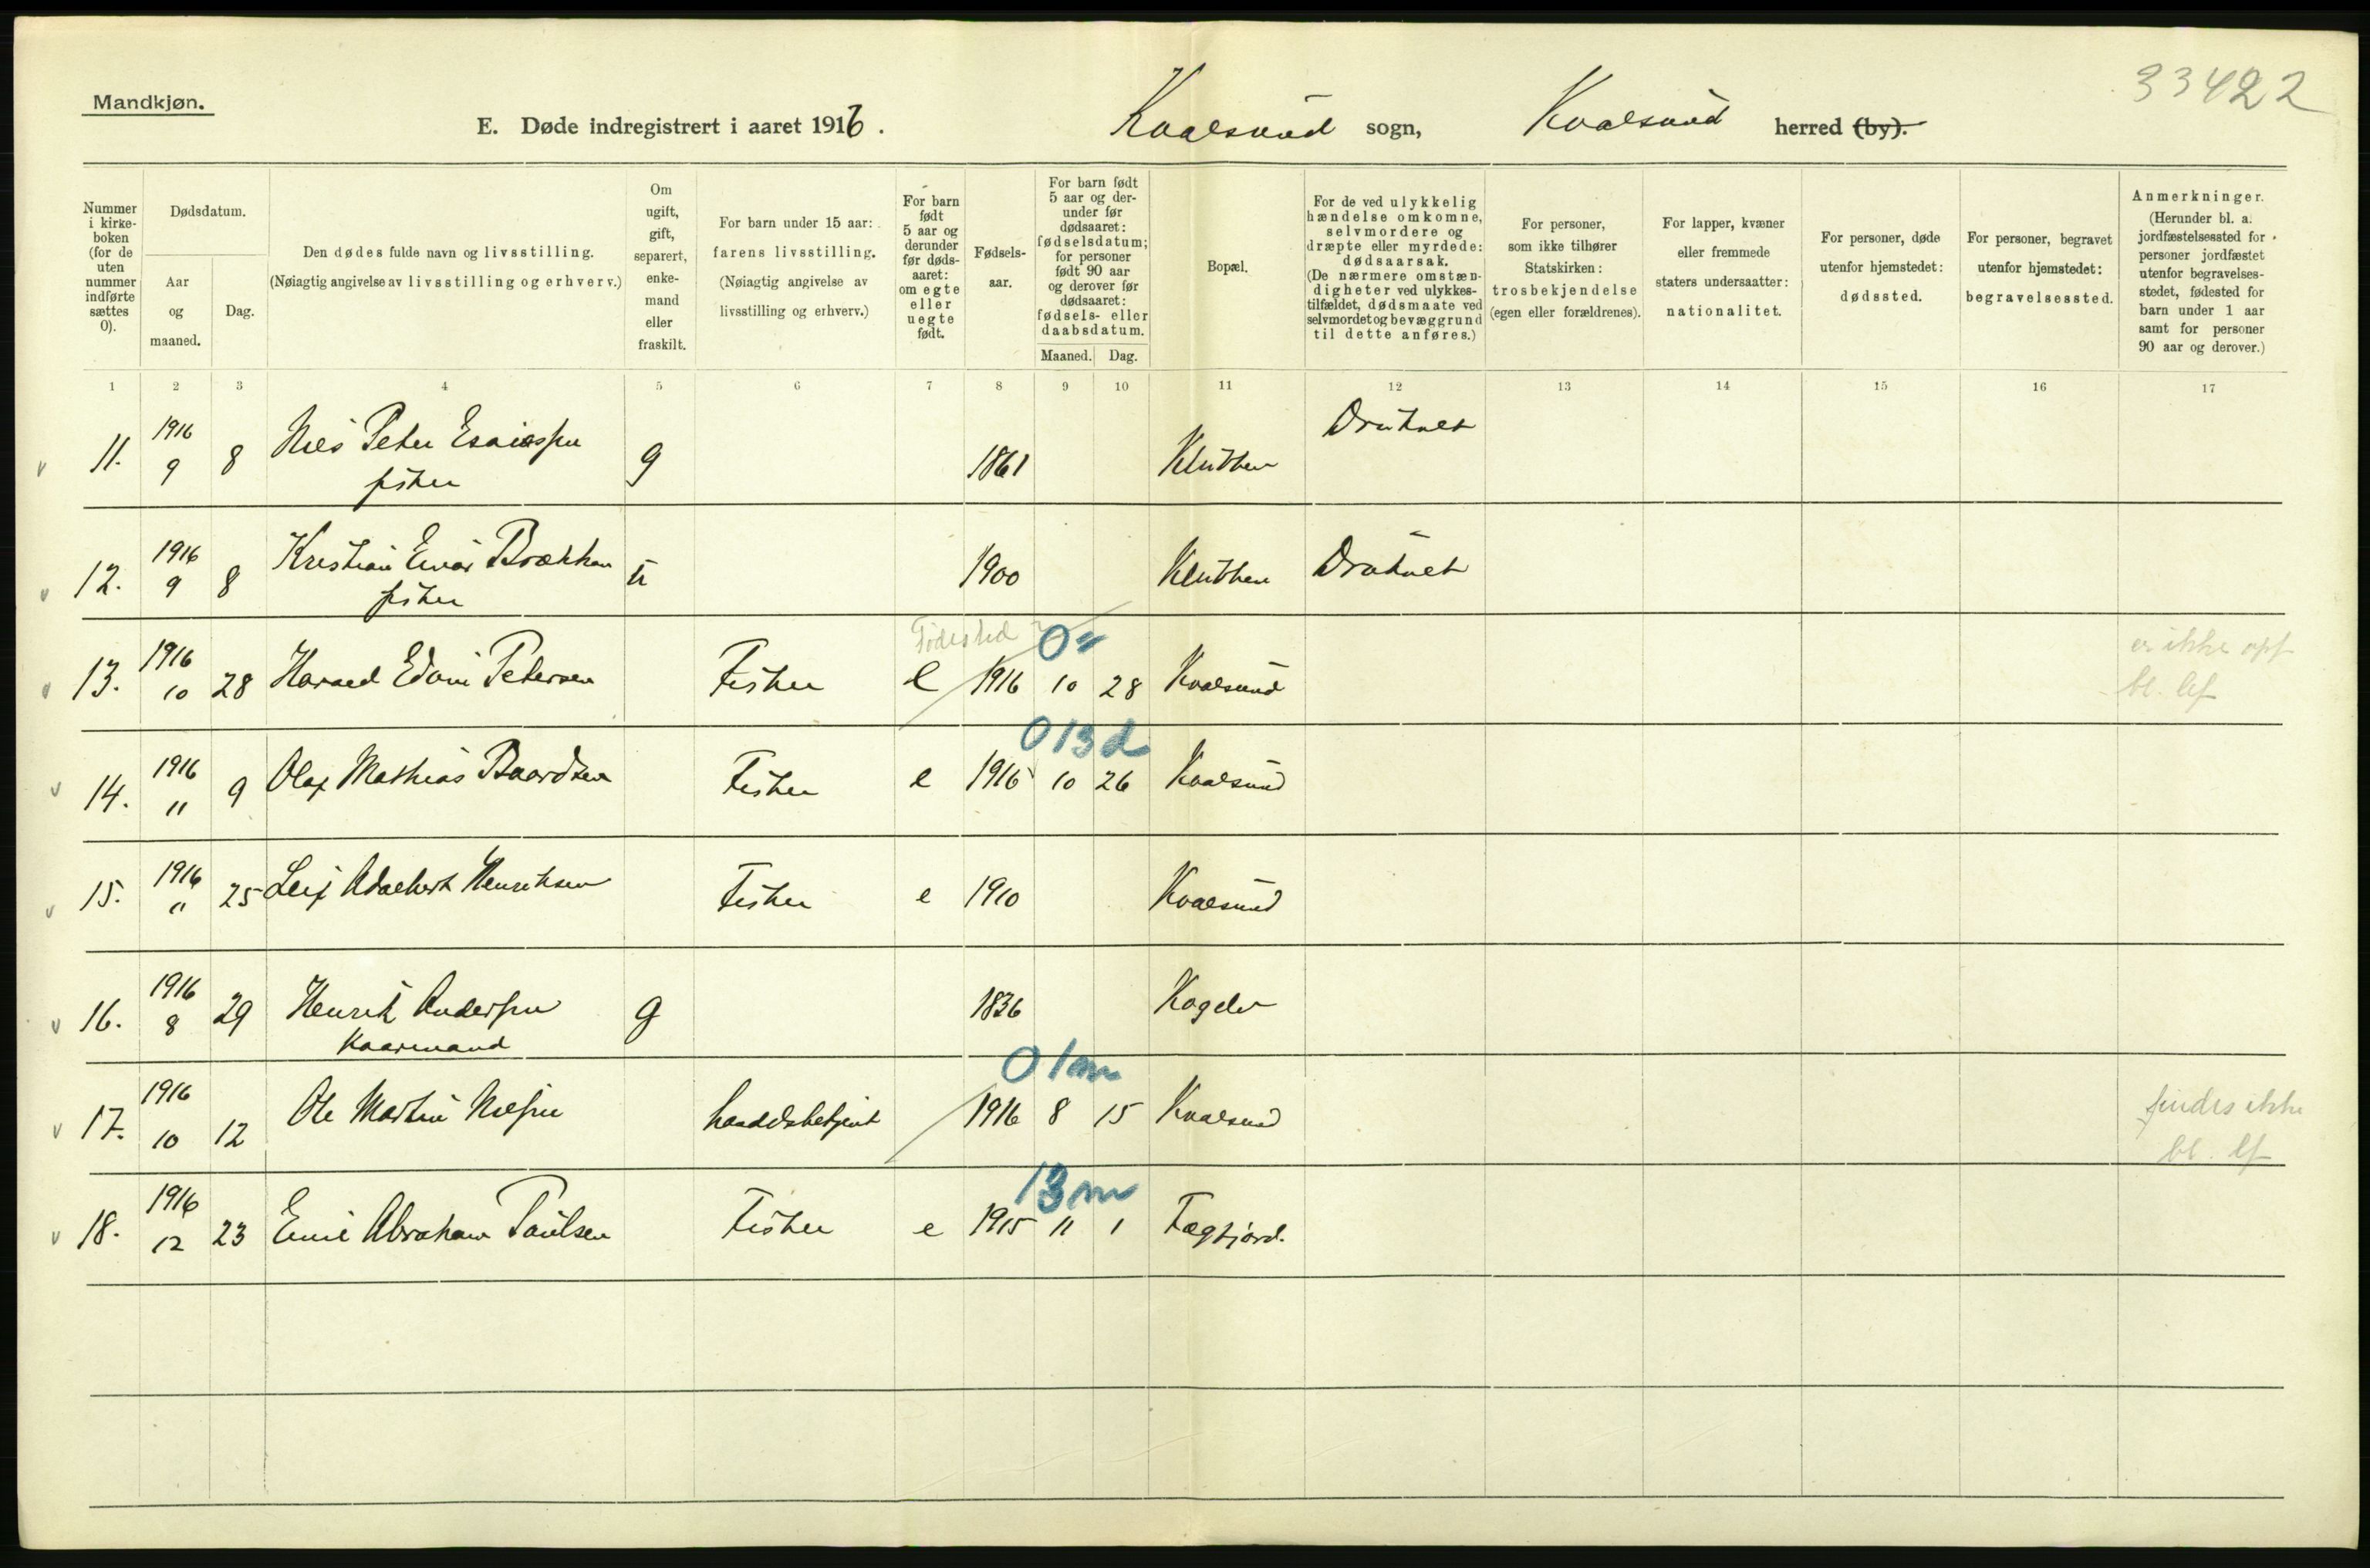 33422
Mandkjøn.
E. Døde indregistrert i aaret 1916. Kvalsund sogn, Kvalsund herred (by).
Nummer i kirkeboken (for de uten nummer indførte sættes 0).
Dødsdatum.
Aar og maaned.
Dag.
Den dødes fulde navn og livsstilling.
(Nøiagtig angivelse av livsstilling og erhverv.)
Om ugift, gift, separert, enkemand eller fraskilt.
For barn under 15 aar:
farens livsstilling.
(Nøiagtig angivelse av livsstilling og erhverv.)
For barn født 5 aar og derunder før dødsaaret: om egte eller uegte født.
Fødselsaar.
For barn født 5 aar og derunder før dødsaaret: fødselsdatum; for personer født 90 aar og derover før dødsaaret: fødsels- eller daabsdatum.
Maaned. Dag.
Bopæl.
For de ved ulykkelig hændelse omkomne, selvmordere og dræpte eller myrdede: dødsaarsak.
(De nærmere omstændigheter ved ulykkestilfældet, dødsmaate ved selvmordet og bevæggrund til dette anføres.)
For personer, som ikke tilhører Statskirken: trosbekjendelse (egen eller forældrenes).
For lapper, kvæner eller fremmede staters undersaatter: nationalitet.
For personer, døde utenfor hjemstedet: dødssted.
For personer, begravet utenfor hjemstedet: begravelsessted.
Anmerkninger.
(Herunder bl. a. jordfæstelsessted for personer jordfæstet utenfor begravelsesstedet, fødested for barn under 1 aar samt for personer 90 aar og derover.)
1 2 3 4 5 6 7 8 9 10 11 12 13 14 15 16 17
v 11. 1916 9 8 Nils Peter Esaiassen g 1861 Klubben Druknet
fisker
v 12. 1916 9 8 Kristian Einar Brækkan u 1900 Klubben Druknet
fisker
Fødested ? 0
v 13. 1916 10 28 Harald Edvin Petersen Fisker e 1916 10 28 Kvalsund er ikke opf
bl. lf
0 13 d
v 14. 1916 11 9 Olaf Mathias Baardsen Fisker e 1916 10 26 Kvalsund
v 15. 1916 11 25 Leif Adalbert Henriksen Fisker e 1910 Kvalsund
v 16. 1916 8 29 Henrik Anderssen g 1836
Kaarmand
0 1 m
v 17. 1916 10 12 Ole Martin Nilssen handelsbetjent 1916 8 15 Kvalsund findes ikke
bl. lf
13 m
v 18. 1916 12 23 Emil Abraham Paulsen Fisker e 1915 11 1 Fægfjord.